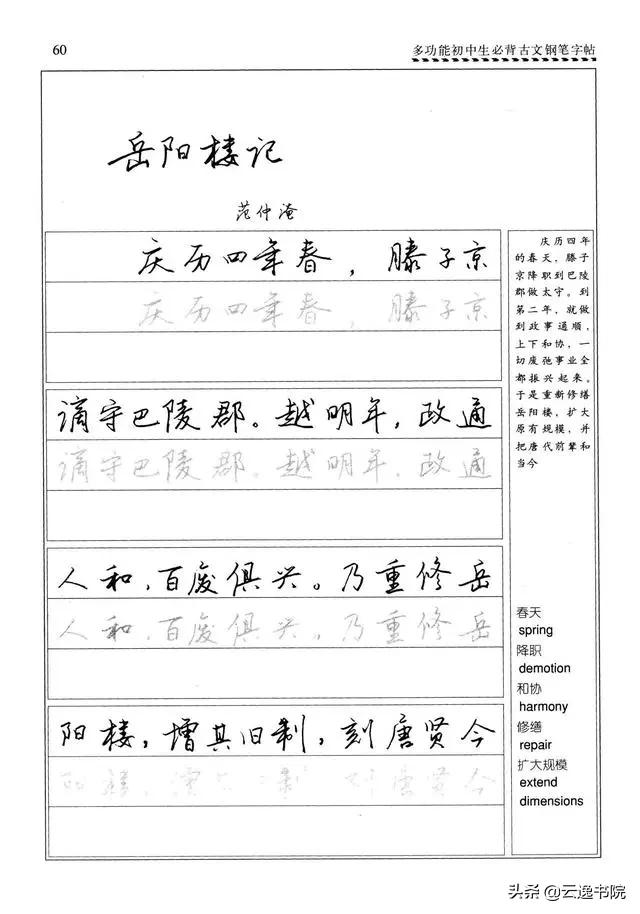 60
多功能初中生必背古文钢笔字帖
岳阳楼记
范仲淹
庆历四年春，滕子京
庆历四年春，滕子京
谪守巴陵郡。越明年，政通
谪守巴陵郡。越明年，政通
人和，百废俱兴。乃重修岳
人和，百废俱兴。乃重修岳
阳楼，增其旧制，刻唐贤今
阳楼，增其旧制，刻唐贤今
庆历四年
的春天，滕子
京降职到巴陵
郡做太守。到
第二年，就做
到政事通顺，
上下和协，一
切废弛事业全
都振兴起来。
于是重新修缮
岳阳楼，扩大
原有规模，并
把唐代前辈和
当今
春天
spring
降职
demotion
和协
harmony
修缮
repair
扩大规模
extend
dimensions
头条@云逸书院